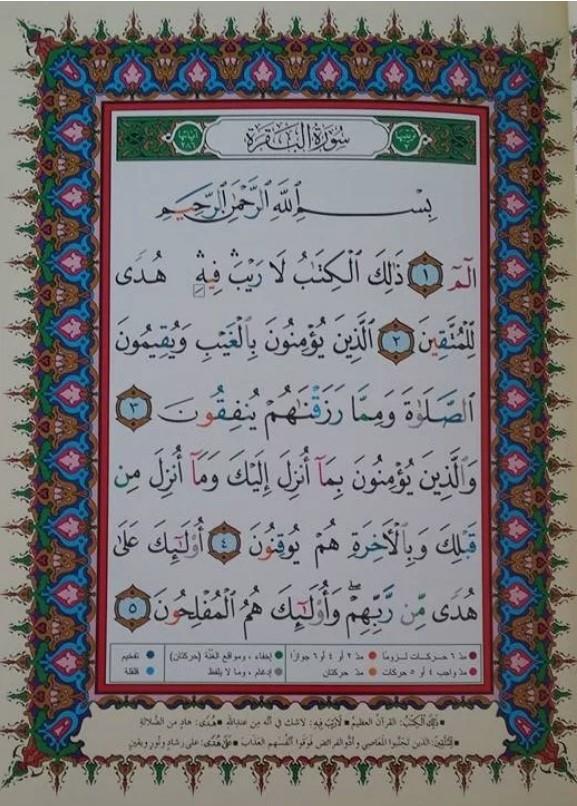 سُورَةُ الْبَقَرَةِ
آياتها ٢٨٦
بِسْمِ اللَّهِ الرَّحْمَٰنِ الرَّحِيمِ
الٓمٓ ١ ذَٰلِكَ الْكِتَٰبُ لَا رَيْبَ ۛ فِيهِ ۛ هُدًى
لِّلْمُتَّقِينَ ٢ الَّذِينَ يُؤْمِنُونَ بِالْغَيْبِ وَيُقِيمُونَ
الصَّلَوٰةَ وَمِمَّا رَزَقْنَٰهُمْ يُنفِقُونَ ٣
وَالَّذِينَ يُؤْمِنُونَ بِمَآ أُنزِلَ إِلَيْكَ وَمَآ أُنزِلَ مِن
قَبْلِكَ وَبِالْءَاخِرَةِ هُمْ يُوقِنُونَ ٤ أُو۟لَٰٓئِكَ عَلَىٰ
هُدًى مِّن رَّبِّهِمْ ۖ وَأُو۟لَٰٓئِكَ هُمُ الْمُفْلِحُونَ ٥
● مدّ ٦ حركات لزوماً ● مدّ ٢ أو ٤ أو ٦ جوازاً ● إخفاء، ومواقع الغُنَّة (حركتان) ● تفخيم
● مدّ واجب ٤ أو ٥ حركات ● مدّ حركتان ● إدغام، وما لا يُلفظ ● قلقلة
■ ذَٰلِكَ الْكِتَٰبُ: القرآن العظيم ■ لَا رَيْبَ فِيهِ: لا شك في أنه من عند الله ■ هُدًى: هادٍ من الضلالة
■ لِّلْمُتَّقِينَ: الذين تجنبوا المعاصي وأدّوا الفرائض فوَقَوا أنفسهم العذاب ■ عَلَىٰ هُدًى: على رشادٍ ونورٍ ويقينٍ